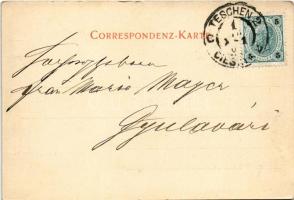 CORRESPONDENZ-KARTE
TESCHEN 2
CIESZYN
5
Hochwohlgeboren
Frau Marie Mayer
Gyulavári